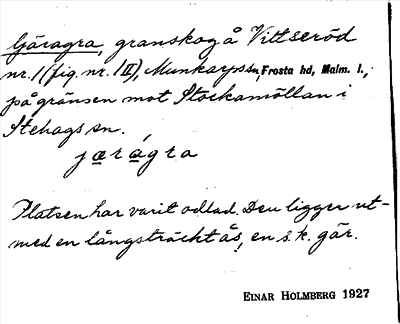 Gäragra, granskog å Vittseröd
nr. 1 (fig. nr. 1 II), Munkarps sn, Frosta hd, Malm. l.,
på gränsen mot Stockamöllan i
Stehags sn.
jæragra
Platsen har varit odlad. Den ligger ut-
med en långsträckt ås, en s.k. gär.
EINAR HOLMBERG 1927